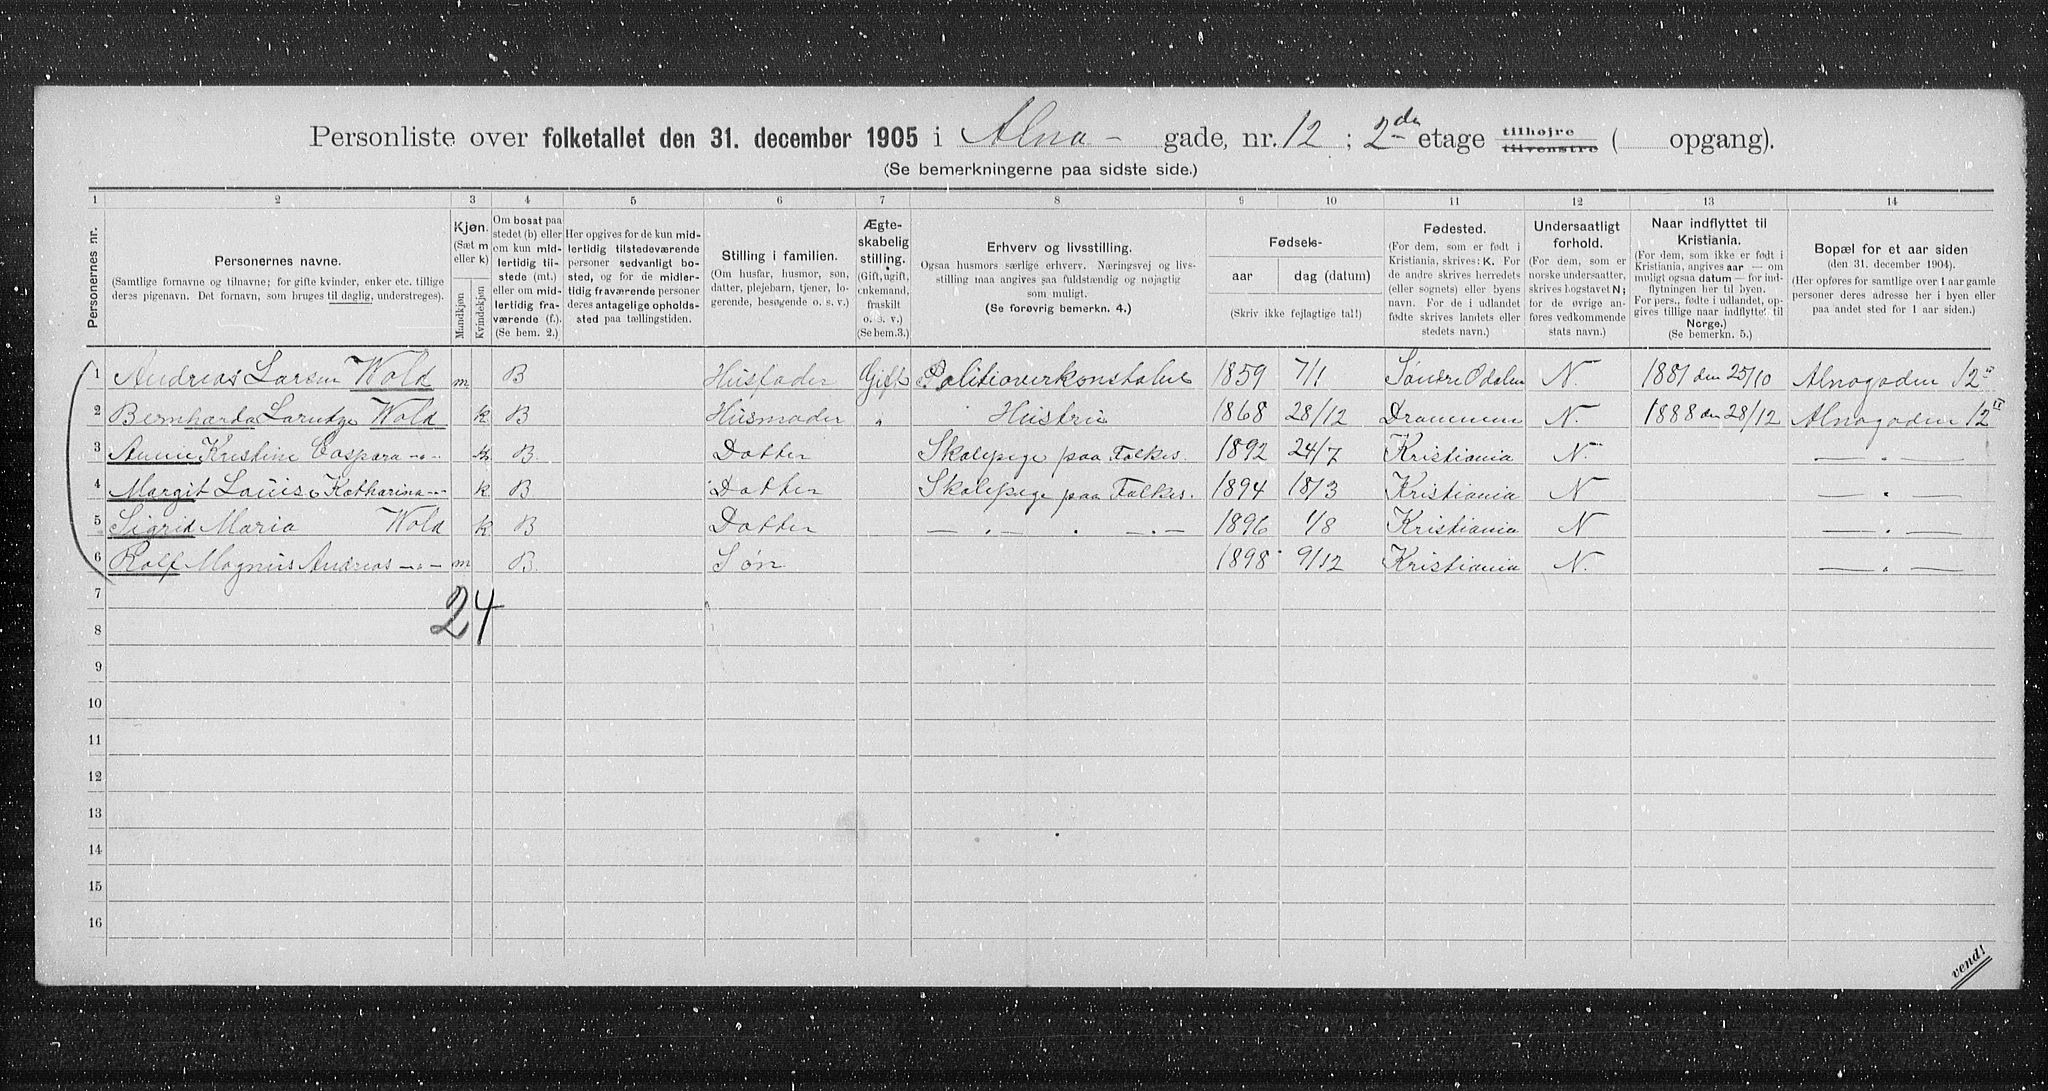 Personliste over folketallet den 31. december 1905 i Alna- gade, nr. 12 ; 2den etage tilhøjre tilvenstre ( opgang).
(Se bemerkningerne paa sidste side.)
1 2 3 4 5 6 7 8 9 10 11 12 13 14
Personernes nr.
Personernes navne.
(Samtlige fornavne og tilnavne; for gifte kvinder, enker etc. tillige
deres pigenavn. Det fornavn, som bruges til daglig, understreges).
Kjøn.
(Sæt m
eller k)
Mandkjøn.
Kvindekjøn
Om bosat paa
stedet (b) eller
om kun mid-
lertidig til-
stede (mt.)
eller om mid-
lertidig fra-
værende (f.).
(Se bem. 2.)
Her opgives for de kun mid-
lertidig tilstedeværende
personer sedvanlig bo-
sted, og for de midler-
tidig fraværende personer
deres antagelige opholds-
sted paa tællingstiden.
Stilling i familien.
(Om husfar, husmor, søn,
datter, plejebarn, tjener, lo-
gerende, besøgende o. s. v.)
Ægte-
skabelig
stilling.
(Gift, ugift,
enkemand,
fraskilt
o. s. v.)
(Se bem.3.)
Erhverv og livsstilling.
Ogsaa husmors særlige erhverv. Næringsvej og livs-
stilling maa angives saa fuldstændig og nøjagtig
som muligt.
(Se forøvrig bemerkn. 4.)
Fødsels-
aar dag (datum)
(Skriv ikke fejlagtige tal!)
Fødested.
(For dem, som er født i
Kristiania, skrives: K. For
de andre skrives herredets
(eller sognets) eller byens
navn. For de i udlandet
fødte skrives landets eller
stedets navn.)
Undersaatligt
forhold.
(For dem, som er
norske undersaatter,
skrives bogstavet N;
for de øvrige an-
føres vedkommende
stats navn.)
Naar indflyttet til
Kristiania.
(For dem, som ikke er født i
Kristiania, angives aar — om
muligt ogsaa datum — for ind-
flytningen her til byen.
For pers., fødte i udlandet, op-
gives tillige naar indflyttet til
Norge.)
(Se bemerkn. 5.)
Bopæl for et aar siden
(den 31. december 1904.)
(Her opføres for samtlige over 1 aar gamle
personer deres adresse her i byen eller
paa andet sted for 1 aar siden.)
1 Andreas Larsen Wold m B Husfader Gift Politioverkonstabel 1859 7/1 Søndre Odalen N. 1881 den 25/10 Alnagaden 12 II
2 Bernharda Lorntze Wold k B Husmoder " Hustru 1868 28/12 Drammen N. 1888 den 28/12 Alnagaden 12 II
3 Anne Kristine Caspara -"- k B. Datter Skolepige paa Folkes. 1892 24/7 Kristiania N. — " —
4 Margit Louise Katharina -"- k B Datter Skolepige paa Folkes. 1894 18/3 Kristiania N — " —
5 Sigrid Maria Wold k B Datter — " — " — " — 1896 1/8 Kristiania N — " —
6 Rolf Magnus Andreas -"- m B. Søn 1898 9/12 Kristiania N. — " —
7
24
8
9
10
11
12
13
14
15
16
vend!